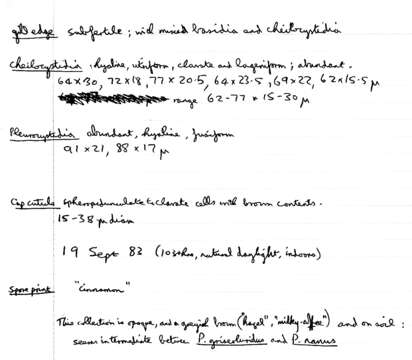 gill edge subfertile; with mixed basidia and cheilocystidia
Cheilocystidia: hyaline, utriform, clavate and lageniform; abundant.
64 x 30, 72 x 18, 77 x 20.5, 64 x 23.5, 69 x 22, 62 x 15.5 µ
range 62-77 x 15-30 µ
Pleurocystidia abundant, hyaline, fusiform
91 x 21, 88 x 17 µ
Cap cuticule spheropedunculate to clavate cells with brown contents.
15-38 µ diam
19 Sept 82 (1034hrs, natural daylight, indoors)
Spore print "cinnamon"
This collection is opaque, and a greyish brown ("hazel", "milky-coffee") and on soil:
seems intermediate between P. griseoluridus and P. nanus